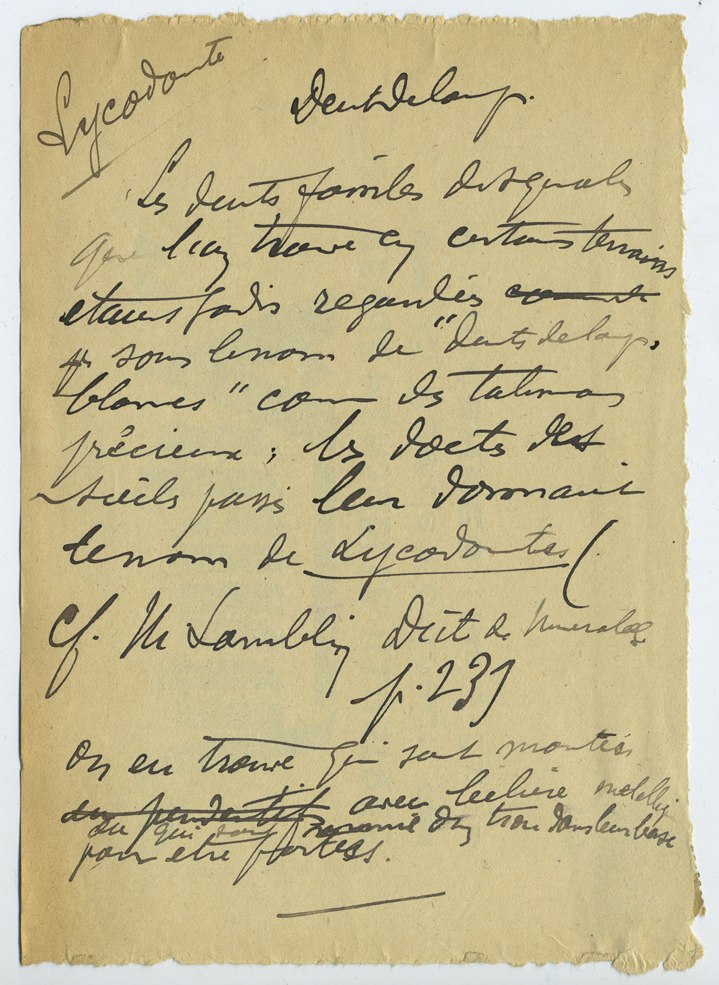 Lycodonte
Dent de loup.
Les dents fossiles de squales
que l'on trouve en certains terrains
étaient jadis regardés comme de
sous le nom de "dents de loup,
blanches" comme des talismans
précieux ; les doctes des
siècles passés leur donnaient
le nom de Lycodontes (
cf. M Lamblin Dict de Mineralog
p. 239
on en trouve qui sont montées
en pendentifs avec bélière métalliq
ou qui sont d'un trou dans leur base
pour être portées.